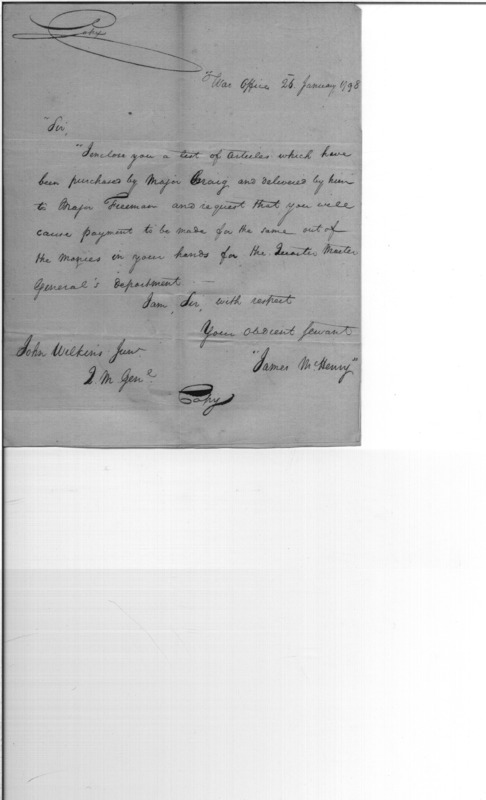 Copy
"War Office 26. January 1798
"Sir,
"I inclose you a list of articles which have
been purchased by Major Craig and delivered by him
to Major Freeman and request that you will
cause payment to be made for the same out of
the monies in your hands for the Quarter Master
General's department
I am, Sir, with respect
Your obedient servant
"James McHenry"
John Wilkins Junr
Q M Genl.
Copy